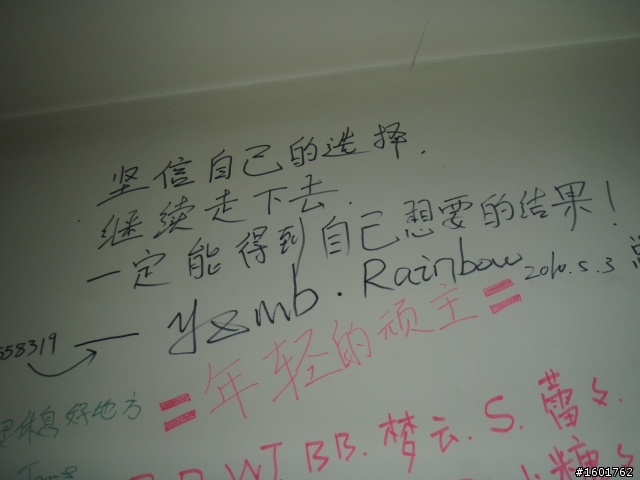 坚信自己的选择.
继续走下去.
一定能得到自己想要的结果!
58319 — yzmb. Rainbow 2010.5.3
=年轻的顽主=
休息好地方
W.J. BB. 梦云. S. 蕾
#1601762